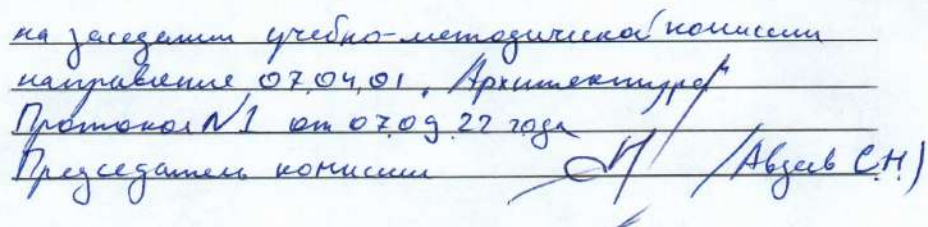 на заседании учебно-методической комиссии
направление 07.04.01 „Архитектура"
Протокол №1 от 07.09.22 года
Председатель комиссии /Авдеев С.Н.)